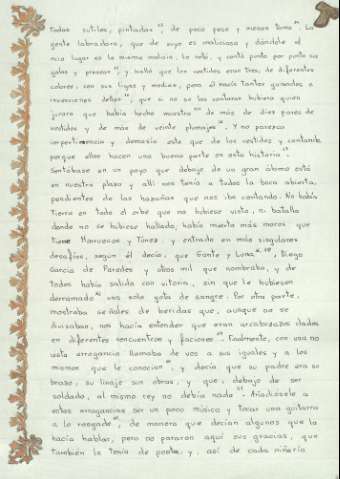 todas sutiles, pintadas, de poco peso y menos tomo. La
gente labradora, que de suyo es maliciosa y dándole el
ocio lugar es la misma malicia, lo notó, y contó punto por punto sus
galas y preseas, y halló que los vestidos eran tres, de diferentes
colores, con sus ligas y medias, pero él hacía tantos guisados e
invenciones dellos, que si no se los contaran hubiera quien
jurara que había hecho muestra de más de diez pares de
vestidos y de más de veinte plumajes. Y no parezca
impertinencia y demasía esto que de los vestidos voy contando,
porque ellos hacen una buena parte en esta historia.
Sentábase en un poyo que debajo de un gran álamo está
en nuestra plaza y allí nos tenía a todos la boca abierta,
pendientes de las hazañas que nos iba contando. No había
tierra en todo el orbe que no hubiese visto, ni batalla
donde no se hubiese hallado, había muerto más moros que
tiene Marruecos y Túnez, y entrado en más singulares
desafíos, según él decía, que Gante y Luna, Diego
García de Paredes y otros mil que nombraba, y de
todos había salido con vitoria, sin que le hubiesen
derramado una sola gota de sangre. Por otra parte,
mostraba señales de heridas que, aunque no se
divisaban, nos hacía entender que eran arcabuzazos dados
en diferentes rencuentros y faciones. Finalmente, con una no
vista arrogancia llamaba de vos a sus iguales y a los
mismos que le conocían, y decía que su padre era su
brazo, su linaje sus obras, y que, debajo de ser
soldado, al mismo rey no debía nada. Añadiósele a
estas arrogancias ser un poco músico y tocar una guitarra
a lo rasgado, de manera que decían algunos que la
hacía hablar, pero no pararon aquí sus gracias, que
también la tenía de poeta, y, así de cada niñería